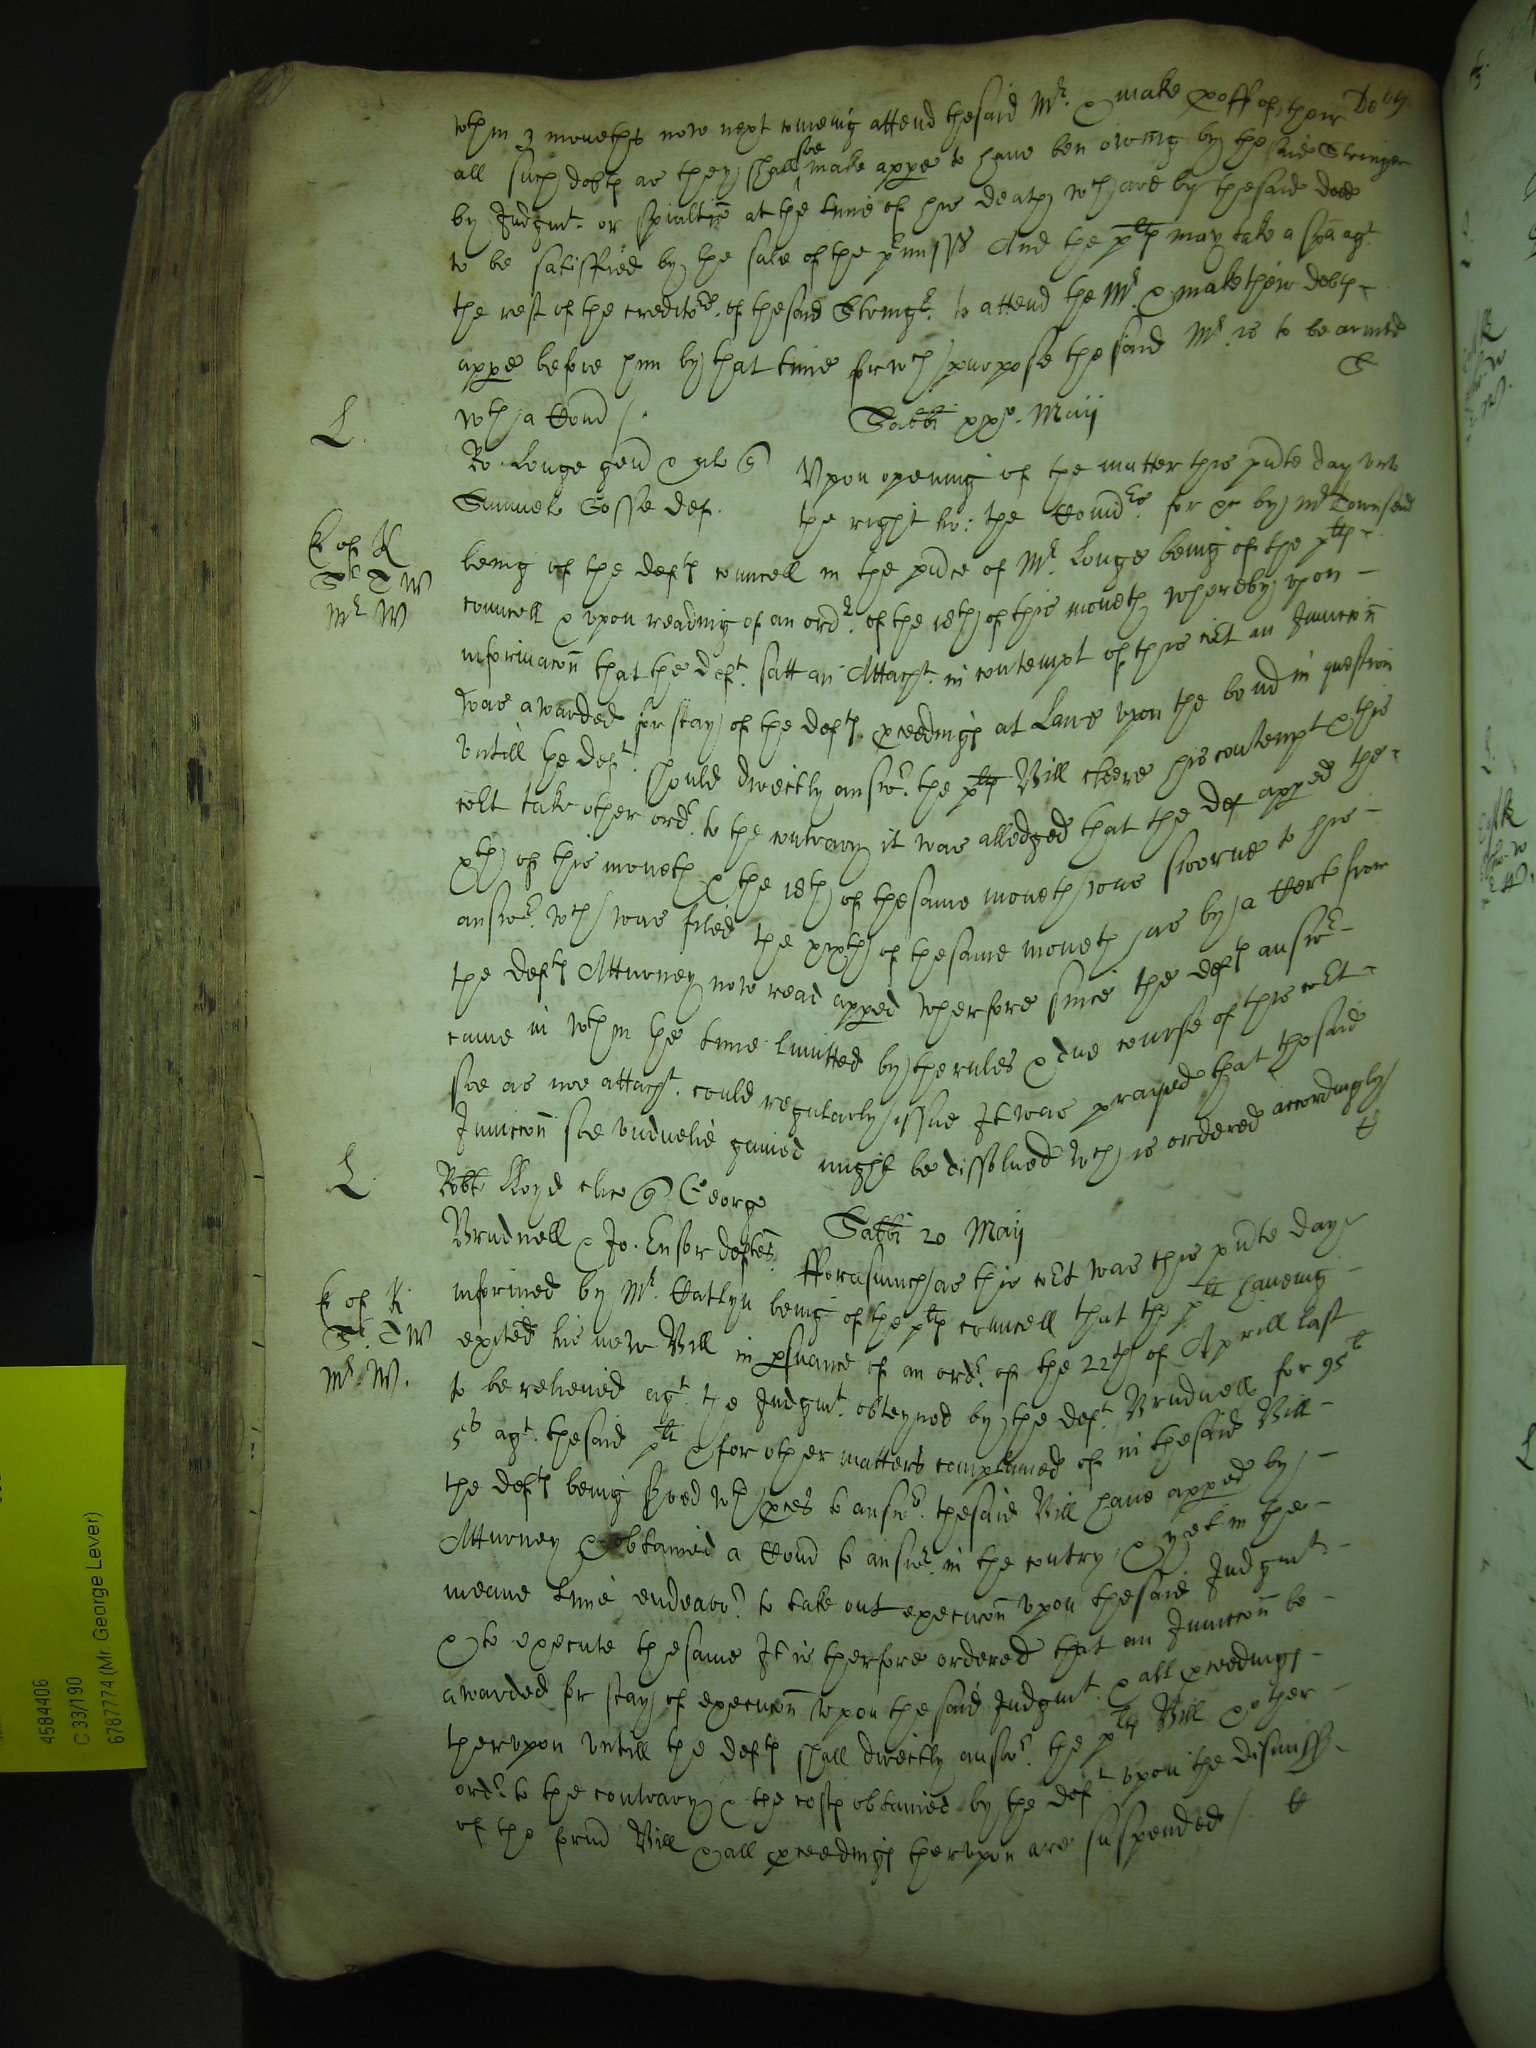 wthin 3 moneths now next comeing attend thesaid Mr. & make proff of their Debts
all such debts as they shall soe make appe to have ben oweing by the said Stringer
by Judgmt. or spialties at the time of his death wch are by thesaid deed
to be satisfied by the sale of the pmisses And the plts may take a spa agt.
the rest of the creditors. of thesaid Stringer. to attend the Mr. & make their debts
appe before him by that time for wch purpose the said Mr. is to be armed
wth a Comd /.
L.
Sabbi xxo. Maij
Ro. Longe gen & al
Samuel Gosse def.
Upon opening of the matter this pnte day unto
the right ho: the Comrs for &c by Mr Townsend
E of K
Sr T W
Mr W
being of the defts councell in the pnce of Mr. Longe being of the plts
councell & upon reading of an ordr. of the 18th of this moneth whereby upon
informacon that the deft. satt an Attacht. in contempt of this cort an Iniuccon
was awarded for stay of the defts. pceedings at Lawe upon the bond in question
untill he deft. should directly answr. the plts Bill cleere his contempt & this
cort take other ordr. to the contrary it was alledged that the def apped the
xth of this moneth & the 18th of thesame moneth was sworne to his
answr. wch was filed the xixth of thesame moneth as by a Cert from
the defts Atturney now read apped Wherfore since the defts answr
came in wthin the time limitted by the rules & due course of this cort
soe as noe attacht. could regularly issue It was prayed that thesaid
Iniuccon soe unduelie gained might be dissolued wch is ordered accordingly
L
Robt Lloyd
George
Brudnell & Jo. Ensor defts.
Sabbi 20 Maij
Forasmuch as this cort was this pnte day
E of K
Sr. T W
Mr. W.
informed by Mr. Catlyn being of the plts councell that the plt haueing
exited his new Bill in psuance of an ordr. of the 22th of Aprill last
to be relieued agt. the Judgmt. obteyned by the deft. Brudnell for 95l
5s agt. thesaid plt & for other matters complained of in thesaid Bill
the defts being serued wth pces to answr. thesaid Bill haue apped by
Atturney & obtained a Comd to answr. in the contry & yet in the
meane time endeavor. to take out execucon upon thesaid Judgmt
& to execute thesame It is therfore ordered that an Iniuccon be
awarded for stay of execucon upon the said Judgmt. & all pceedings
therupon untill the defts shall directly answr. the plts Bill & other
ordr. to the contrary & the costs obtained by the deft upon the dismiss
of the formr Bill & all pceedings therupon are suspended /.
4584406
C 33/190
6787774 (Mr. George Lever)